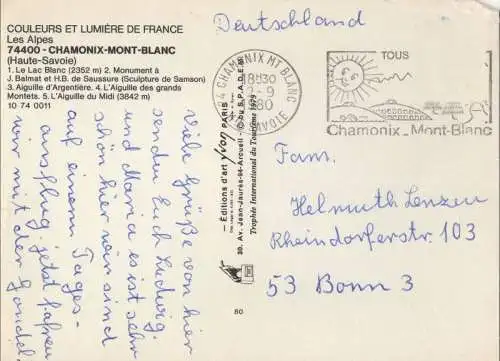 Deutschland
COULEURS ET LUMIÈRE DE FRANCE
Les Alpes
74400 - CHAMONIX-MONT-BLANC
(Haute-Savoie)
1. Le Lac Blanc (2352 m) 2. Monument à
J. Balmat et H.B. de Saussure (Sculpture de Samson)
3. Aiguille d'Argentière. 4. L'Aiguille des grands
Montets. 5. L'Aiguille du Midi (3842 m)
10 74 0011
CHAMONIX MT BLANC
18H30
-9
1980
SAVOIE
TOUS
Chamonix - Mont-Blanc
Viele Grüße von hier
senden Euch Ludwig
und Maria es ist sehr
schön hier wir sind
auf einem Tages-
ausflug jetzt fahren
wir mit der Gondel.
— Éditions d'art yvon PARIS
30, Av. Jean-Jaurès-94-Arcueil - © by S.P.A.D.E.M.
Trophée International du Tourisme 1979
80
Fam.
Helmuth Lenzen
Rheindorferstr. 103
53 Bonn 3